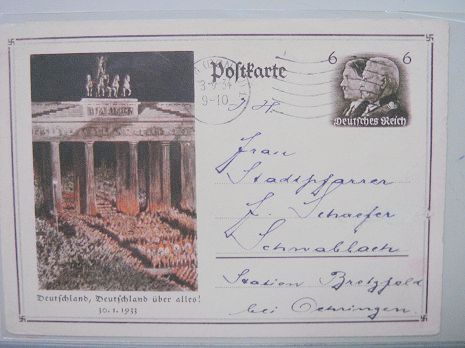 Postkarte
6 6
Deutsches Reich
34
9-10
Frau
Stadtpfarrer
Schaefer
Schwabbach
Station Bretzfeld
bei Oehringen
Deutschland, Deutschland über alles!
30.1.1933